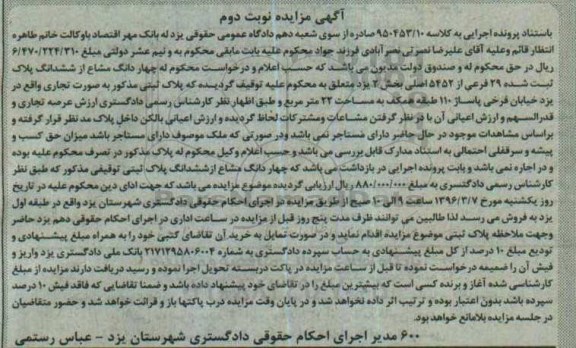 آگهی مزایده نوبت دوم
باستناد پرونده اجرایی به کلاسه ۹۵۰۴۵۳/۱۰ صادره از سوی شعبه دهم دادگاه عمومی حقوقی یزد له بانک مهر اقتصاد باوکالت خانم طاهره
انتظار قائم وعلیه آقای علیرضا نصرتی نصرآبادی فرزند جواد محکوم علیه بابت مابقی محکوم به و نیم عشر دولتی مبلغ ۶/۴۷۰/۲۲۴/۳۱۰
ریال در حق محکوم له و صندوق دولت مدیون می باشد که حسب اعلام و درخواست محکوم له چهار دانگ مشاع از ششدانگ پلاک
ثبت شده ۲۹ فرعی از ۵۴۵۲ اصلی بخش ۲ یزد متعلق به محکوم علیه توقیف گردیده که پلاک ثبتی مذکور به صورت تجاری واقع در
یزد خیابان فرخی پاساژ ۱۱۰ طبقه همکف به مساحت ۲۲ متر مربع و طبق اظهار نظر کارشناس رسمی دادگستری ارزش عرصه تجاری و
قدرالسهم و ارزش اعیانی آن با در نظر گرفتن مشاعات ومشترکات لحاظ گردیده و ارزش اعیانی بالکن داخل پلاک مد نظر قرار گرفته و
براساس مشاهدات موجود در حال حاضر دارای مستاجر نمی باشد ودر صورتی که ملک موصوف دارای مستاجر باشد میزان حق کسب و
پیشه و سرقفلی احتمالی به استناد مدارک قابل بررسی می باشد و حسب اعلام وکیل محکوم له پلاک مذکور در تصرف محکوم علیه بوده
و در اجاره نمی باشد و بابت پرونده اجرایی در بازداشت می باشد که چهار دانگ مشاع ازششدانگ پلاک ثبتی توقیفی مذکور که طبق نظر
کارشناس رسمی دادگستری به مبلغ ۸۸۰/۰۰۰/۰۰۰ ریال ارزیابی گردیده موضوع مزایده می باشد که جهت ادای دین محکوم علیه در تاریخ
روز یکشنبه مورخ ۱۳۹۶/۳/۷ ساعت ۹ الی ۱۰ صبح از طریق مزایده در اجرای احکام حقوقی دادگستری شهرستان یزد واقع در طبقه اول
یزد به فروش می رسد لذا طالبین می توانند ظرف مدت پنج روز قبل از مزایده در ساعت اداری در اجرای احکام حقوقی دهم یزد حاضر
وجهت ملاحظه پلاک ثبتی موضوع مزایده اقدام نماید و در صورت تمایل به خرید آن تقاضای کتبی خود را به همراه مبلغ پیشنهادی و
تودیع مبلغ ۱۰ درصد از کل مبلغ پیشنهادی به حساب سپرده دادگستری به شماره ۲۱۷۱۲۹۵۸۰۶۰۰۴ بانک ملی دادگستری یزد واریز و
فیش آن را ضمیمه درخواست نموده تا قبل از ساعت مزایده در پاکت دربسته تحویل اجرا نموده و رسید دریافت دارند مزایده از مبلغ
کارشناسی شده آغاز و برنده کسی است که بیشترین مبلغ را در تقاضای خود پیشنهاد داده باشد و ضمنا تقاضایی که فاقد فیش ۱۰ درصد
سپرده باشد بدون اعتبار بوده و ترتیب اثر داده نخواهد شد و در پایان وقت مزایده درب پاکتها باز و قرائت خواهد شد و حضور متقاضیان
در جلسه مزایده بلامانع خواهد بود.
۶۰۰ مدیر اجرای احکام حقوقی دادگستری شهرستان یزد - عباس رستمی